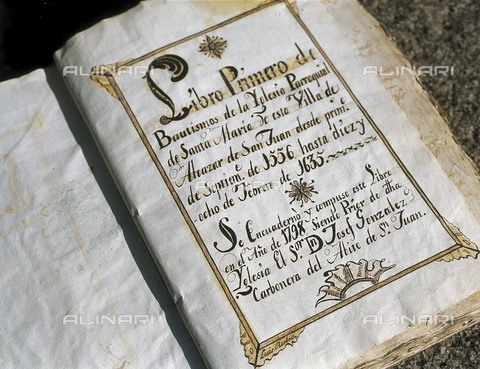 Libro Primero de
Bautismos de la Yglesia Parroquial
de Santa Maria de esta Villa de
Alcazar de San Juan desde primero
de Sepiembre de 1556 hasta diez y
ocho de Febrero de 1635
Se Encuaderno y compuso este Libro
en el Año de 1798 Siendo Prior de dha
Yglesia El Sor. D. Josef Gonzalez
Carbonera del Abito de Sn. Juan.
ALINARI
ALINARI
ALINARI
ALINARI
ALINARI